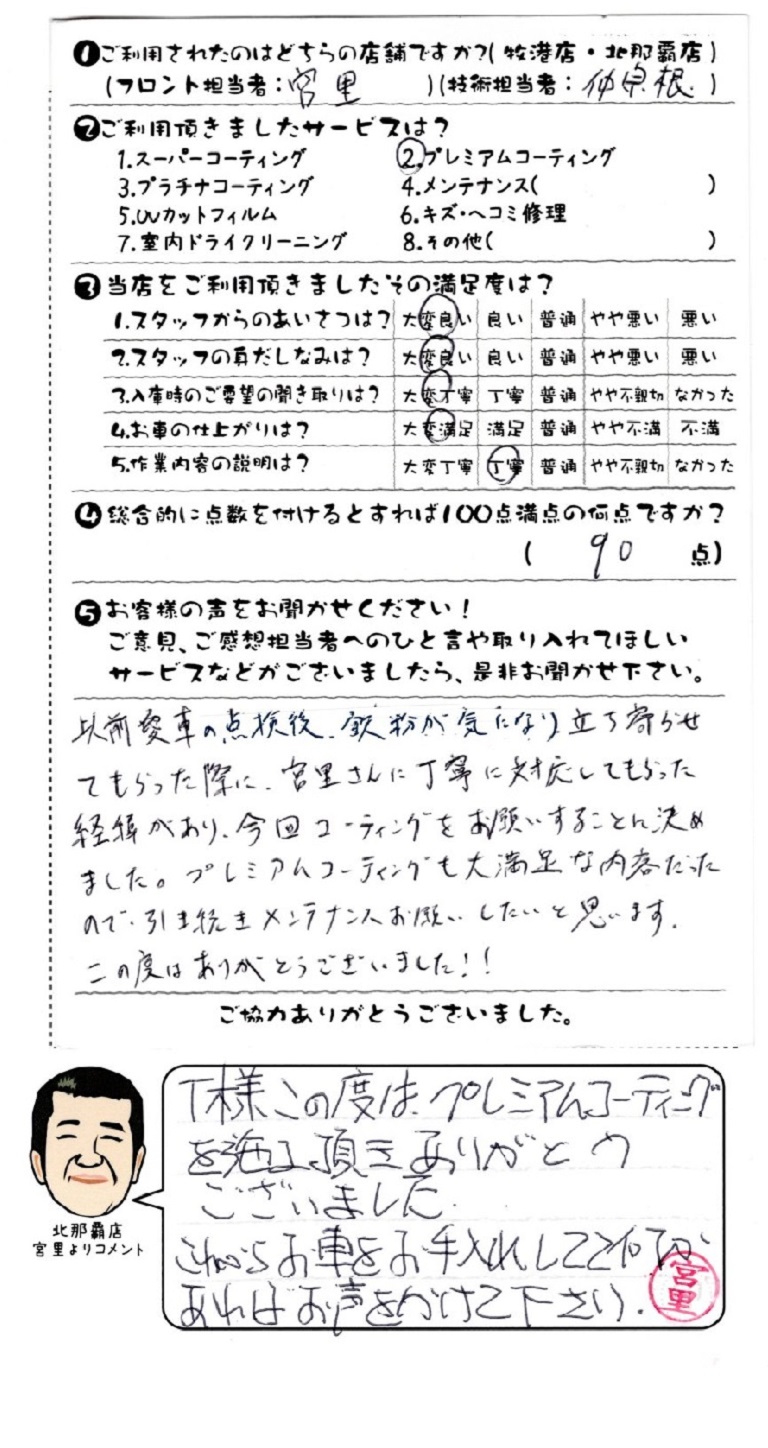 ❶ご利用されたのはどちらの店舗ですか?(牧港店・北那覇店)
(フロント担当者:宮里 )(技術担当者:仲宗根 )
❷ご利用頂きましたサービスは?
1.スーパーコーティング 2.プレミアムコーティング
3.プラチナコーティング 4.メンテナンス( )
5.UVカットフィルム 6.キズ・ヘコミ修理
7.室内ドライクリーニング 8.その他( )
❸当店をご利用頂きましたその満足度は?
1.スタッフからのあいさつは? 大変良い 良い 普通 やや悪い 悪い
2.スタッフの身だしなみは? 大変良い 良い 普通 やや悪い 悪い
3.入庫時のご要望の聞き取りは? 大変丁寧 丁寧 普通 やや不親切 なかった
4.お車の仕上がりは? 大変満足 満足 普通 やや不満 不満
5.作業内容の説明は? 大変丁寧 丁寧 普通 やや不親切 なかった
❹総合的に点数を付けるとすれば100点満点の何点ですか?
( 90 点)
❺お客様の声をお聞かせください!
ご意見、ご感想担当者へのひと言や取り入れてほしい
サービスなどがございましたら、是非お聞かせ下さい。
以前愛車の点検後、鉄粉が気になり立ち寄らせ
てもらった際に、宮里さんに丁寧に対応してもらった
経緯があり、今回コーティングをお願いすることに決め
ました。プレミアムコーティングも大満足な内容だった
ので、引き続きメンテナンスお願いしたいと思います。
この度はありがとうございました!!
ご協力ありがとうございました。
T様この度は、プレミアムコーティング
を施工頂きありがとう
ございました。
これからお車をお手入れして
あればお声をかけて下さい。
宮里
北那覇店
宮里よりコメント